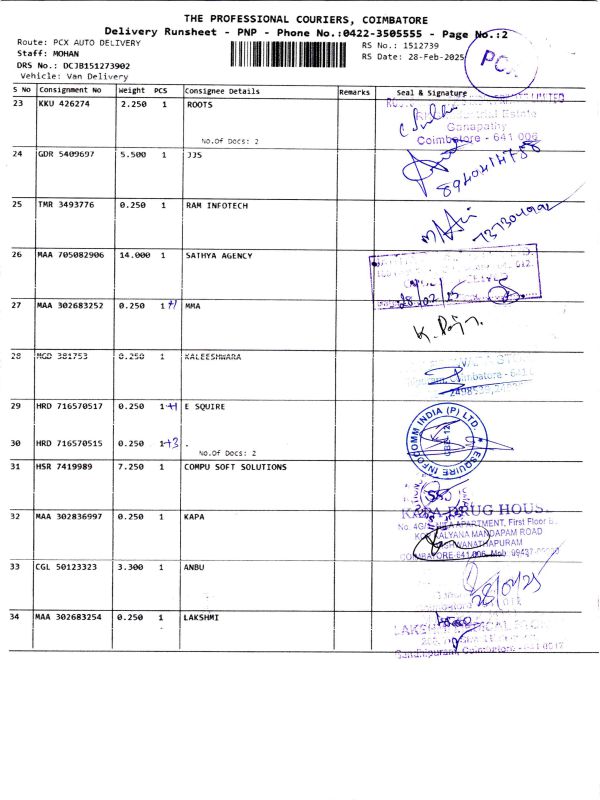 THE PROFESSIONAL COURIERS, COIMBATORE
Delivery Runsheet - PNP - Phone No.:0422-3505555 - Page No.:2
Route: PCX AUTO DELIVERY
RS No.: 1512739
Staff: MOHAN
RS Date: 28-Feb-2025
DRS No.: DCJB151273902
Vehicle: Van Delivery
PCX
S No Consignment No Weight PCS Consignee Details Remarks Seal & Signature
23 KKU 426274 2.250 1 ROOTS
Industrial Estate
Ganapathy
No.Of Docs: 2 Coimbatore - 641 006
24 GDR 5409697 5.500 1 JJS
8940414758
25 TMR 3493776 0.250 1 RAM INFOTECH
26 MAA 705082906 14.000 1 SATHYA AGENCY
28/02/25
27 MAA 302683252 0.250 1 +1 MMA
K. Raja
28 MGD 381753 0.250 1 KALEESHWARA
Coimbatore - 641
29 HRD 716570517 0.250 1 +1 E SQUIRE
ESQUIRE INFOCOMM INDIA (P) LTD.
30 HRD 716570515 0.250 1 +3 .
No.Of Docs: 2
31 HSR 7419989 7.250 1 COMPU SOFT SOLUTIONS
32 MAA 302836997 0.250 1 KAPA
KAPA DRUG HOUSE
APARTMENT, First Floor
KALYANA MANDAPAM ROAD
VISHWANATHAPURAM
COIMBATORE-641 006, Mob: 99437
33 CGL 50123323 3.300 1 ANBU
28/02/25
34 MAA 302683254 0.250 1 LAKSHMI
Gandhipuram, Coimbatore - 641 0012